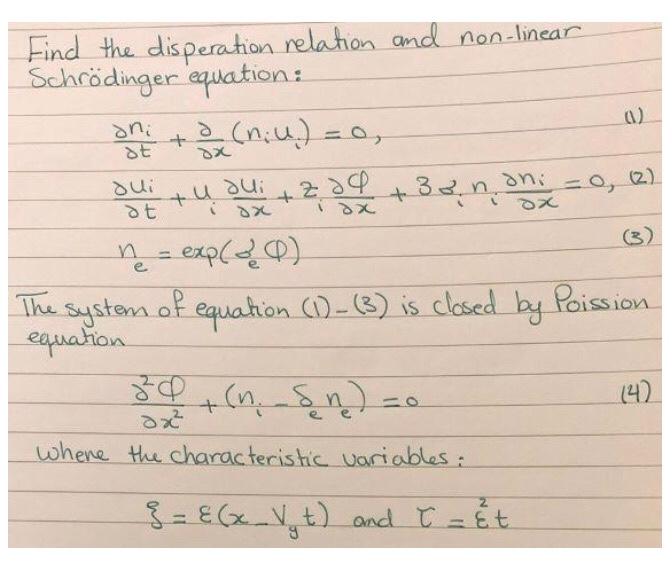 Find the disperation relation and non-linear
Schrödinger equation:
∂nᵢ/∂t + ∂/∂x (nᵢuᵢ) = 0, (1)
∂uᵢ/∂t + uᵢ ∂uᵢ/∂x + zᵢ ∂φ/∂x + 3αᵢ nᵢ ∂nᵢ/∂x = 0, (2)
nₑ = exp(αₑ φ) (3)
The system of equation (1)-(3) is closed by Poission
equation
∂²φ/∂x² + (nᵢ - δₑ nₑ) = 0 (4)
where the characteristic variables:
ξ = ε(x - V_g t) and τ = ε² t